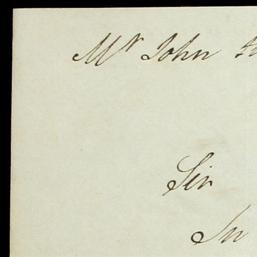 Mr John
Sir
In